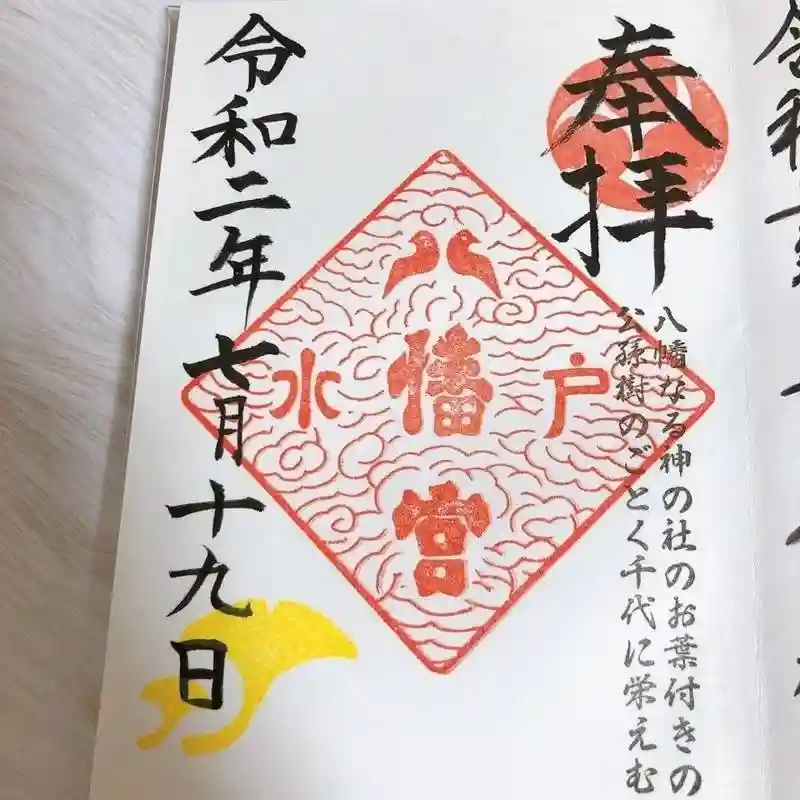 奉拝
八幡なる神の社のお葉付きの
公孫樹のごとく千代に栄えむ
水戸
八幡宮
令和二年七月十九日
令和